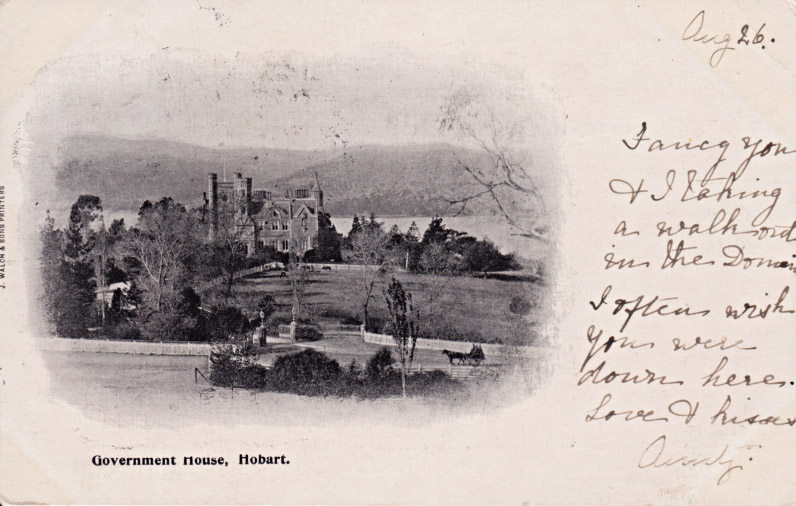 Aug 26.
Fancy you
& I taking
a walk out
in the Domain
I often wish
you were
down here.
Love & kisses
Aunty.
Government House, Hobart.
J. WALCH & SONS PRINTERS